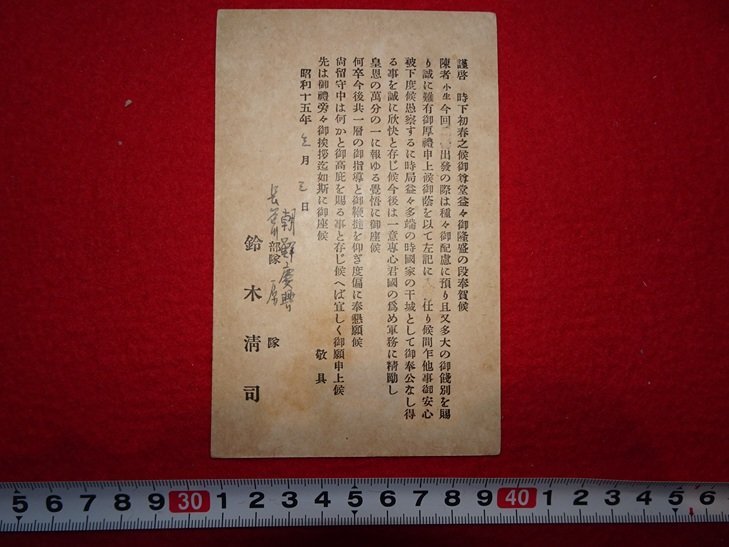 謹啓 時下初春之候御尊堂益々御隆盛の段奉賀候
陳者小生今回 出發の際は種々御配慮に預り且又多大の御餞別を賜
り誠に難有御厚禮申上候御蔭を以て左記に 任り候間乍他事御安心
被下度候愚察するに時局益々多端の時國家の干城として御奉公なし得
る事を誠に欣快と存じ候今後は一意專心君國の爲め軍務に精勵し
皇恩の萬分の一に報ゆる覺悟に御座候
何卒今後共一層の御指導と御鞭撻を仰ぎ度偏に奉懇願候
尙留守中は何かと御高庇を賜る事と存じ候へば宜しく御願申上候
先は御禮旁々御挨拶迄如斯に御座候
敬具
昭和十五年 月 日
朝鮮慶興
部隊 隊
鈴木淸司
5 6 7 8 9 30 1 2 3 4 5 6 7 8 9 40 1 2 3 4 5 6